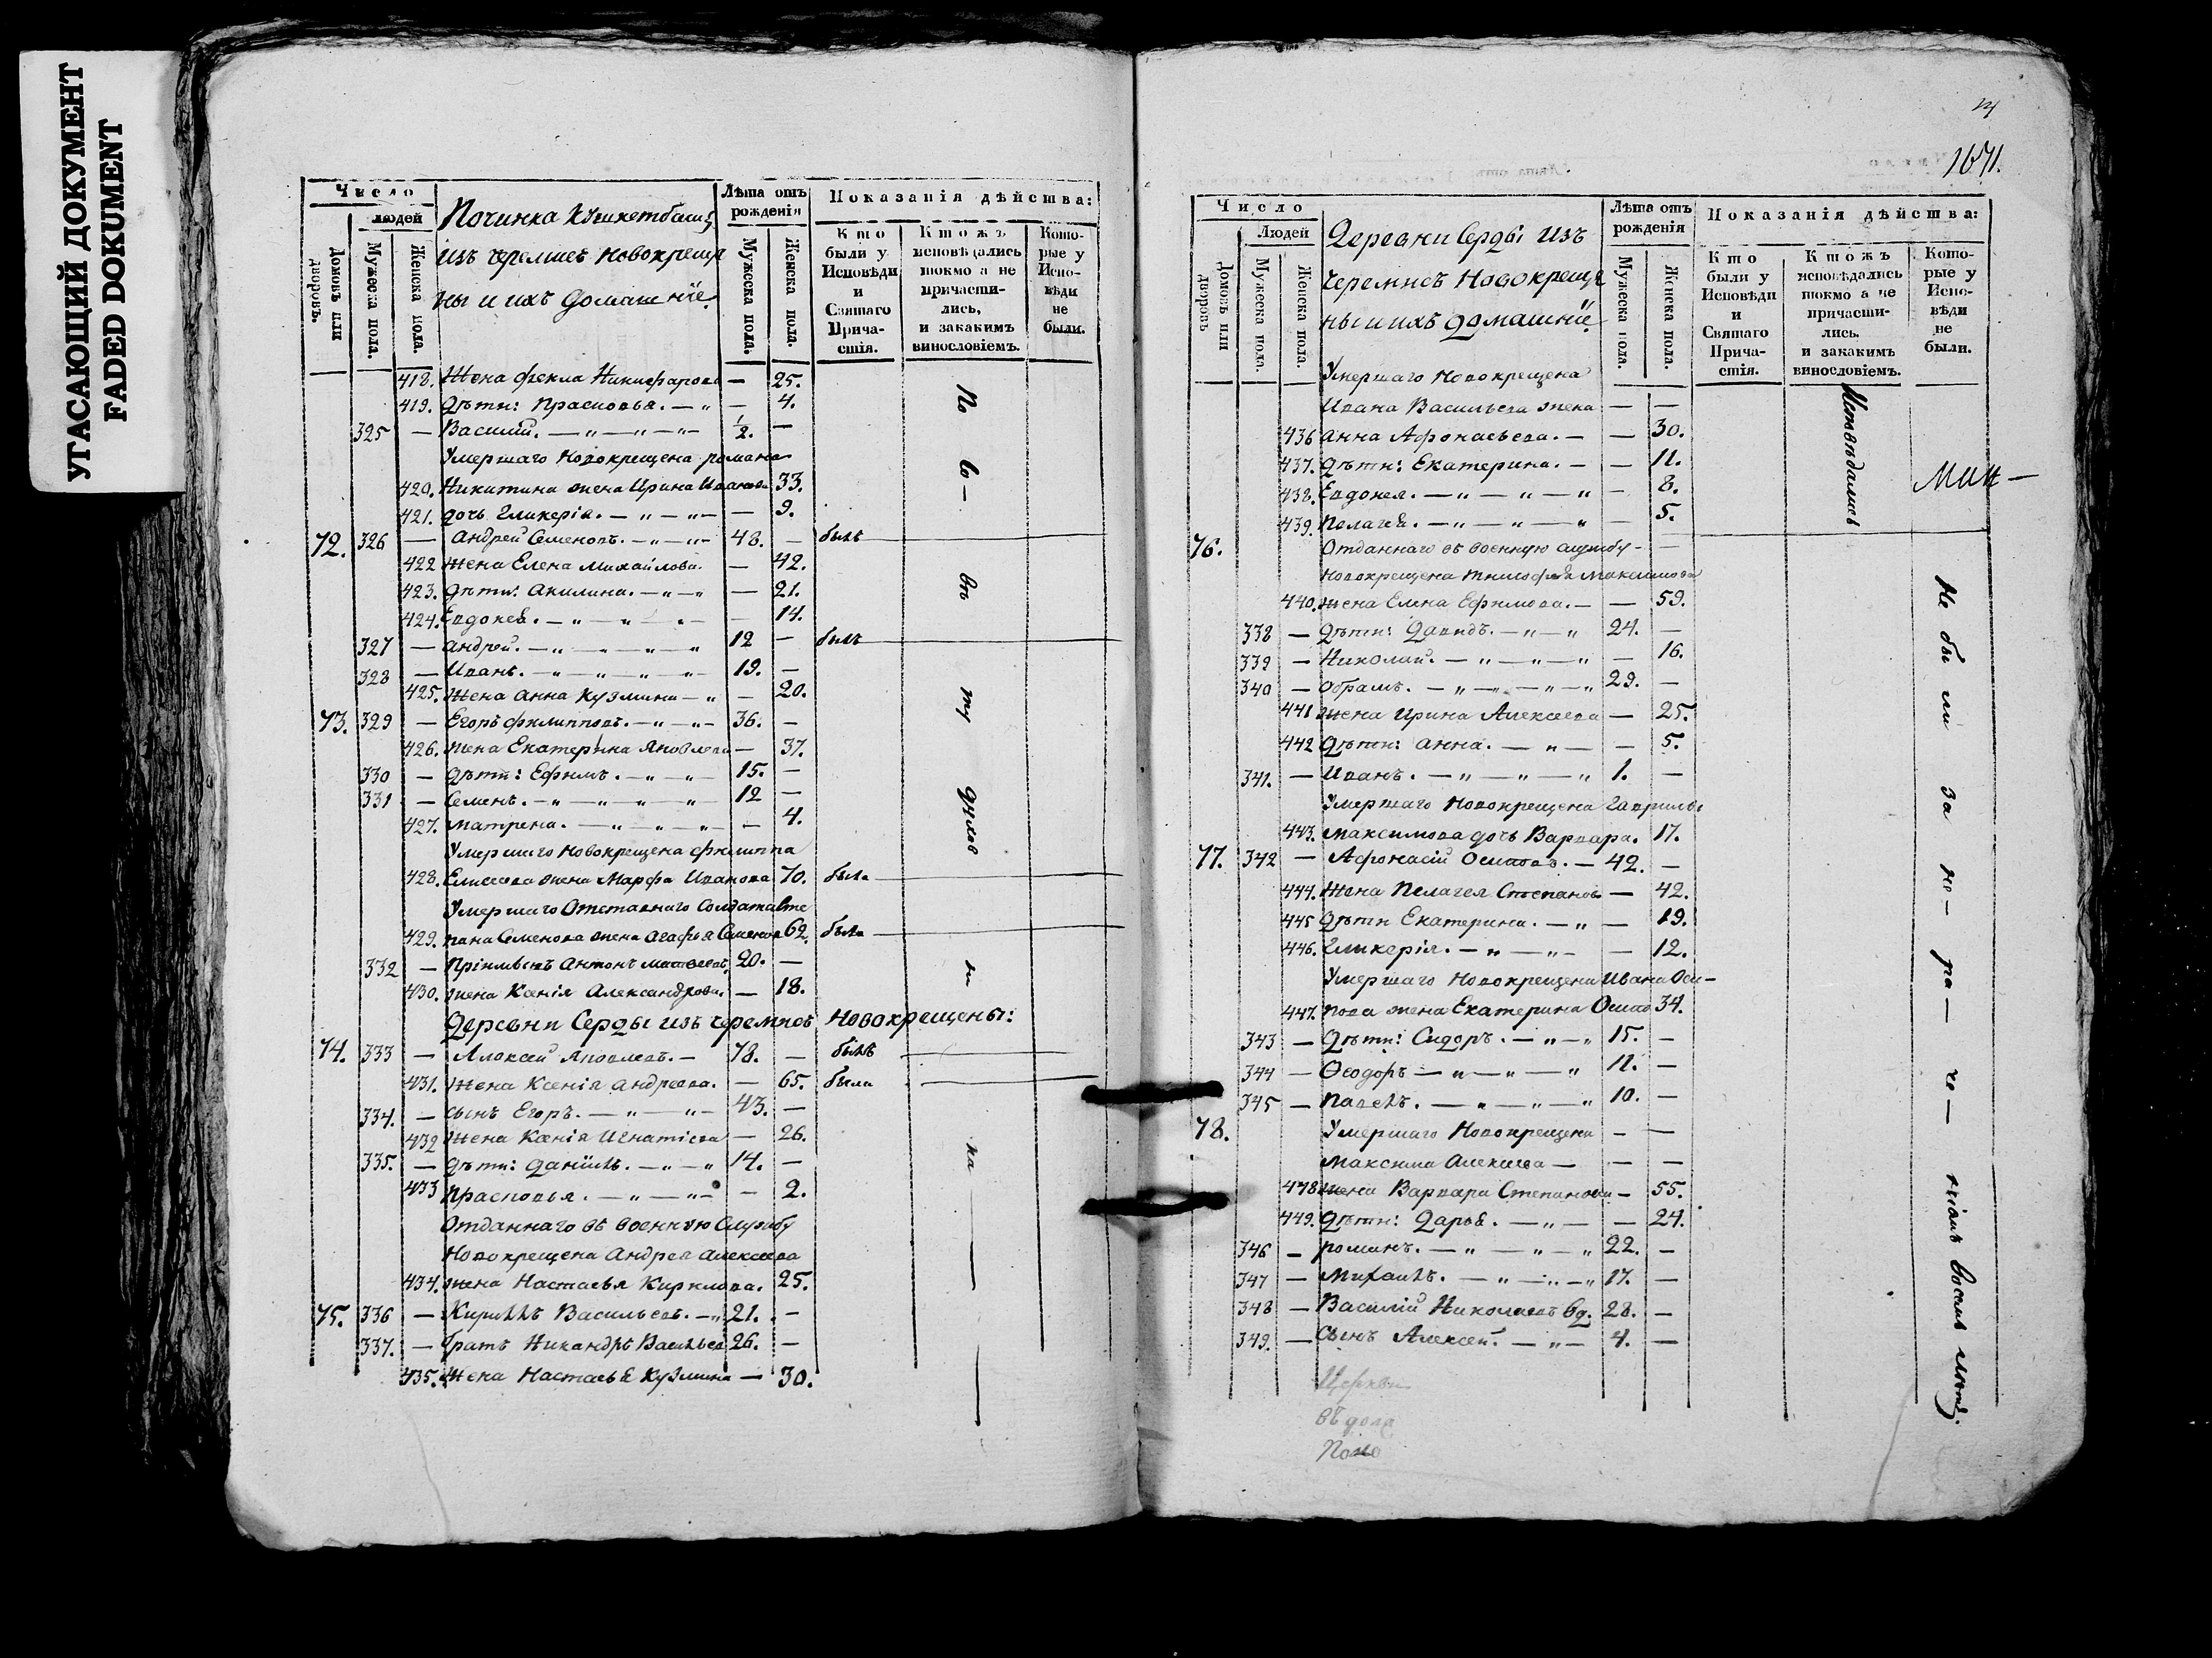 УГАСАЮЩИЙ ДОКУМЕНТ
FADED DOKUMENT
Число
людей
Домовъ или дворовъ.
Мужеска пола.
Женска пола.
Починка
изъ черемисъ новокреще
ны и ихъ домашнїе
Лѣта отъ рожденїя
Мужеска пола.
Женска пола.
Показанїя дѣйства:
Кто были у Исповѣди и Святаго Причастїя.
Кто жъ исповѣдались токмо а не причастились, и за какимъ винословїемъ.
Которые у Исповѣди не были.
418. Жена Фекла Никифорова — 25.
419. Дѣти: Прасковья. — „ — 4.
325 — Василий. — „ — „ — „ — 1/2. —
Умершаго Новокрещена Романа
420. Никитина жена Ирина Иванова 33.
421. дочь Гликерїя. — „ — „ — — 9.
72. 326 — Андрей Семеновъ. — „ — „ — 48. — былъ
422 жена Елена Михайлова. — 42.
423. Дѣти: Акилина. — „ — „ — 21.
424. Евдокея. — „ — „ — 14.
327 — Андрей. — „ — „ — „ 12 — былъ
328 — Иванъ. — „ — „ — „ 19. —
425. Жена Анна Кузмина — „ — 20.
73. 329 — Егоръ Филипповъ. — „ — „ — 36. —
426. жена Екатерина Яковлева — 37.
330 — Дѣти: Ефимъ. — „ — „ — 15. —
331 — Семенъ. — „ — „ — „ 12 —
427. Матрена. — „ — „ — „ — 4.
Умершаго Новокрещена Филиппа
428. Елисеева жена Марфа Иванова 70. была
Умершаго Отставнаго Солдата Сте
429. пана Семенова жена Агафья Семенова 62. была
332 — Прїимышъ Антонъ Матвеевъ. 20. —
430. жена Ксенїя Александрова. — 18.
Деревни Серды изъ черемисъ Новокрещены:
74. 333 — Алексей Яковлевъ. — 78. — былъ
431. Жена Ксенїя Андреева. — 65. была
334. — сынъ Егоръ. — „ — „ — 43. —
432 Жена Ксенїя Игнатїева — 26.
335. — Дѣти: Данїилъ. — „ — „ 14. —
433 Прасковья. — „ — „ — — 2.
Отданнаго въ военную Службу
Новокрещена Андрея Алексеева
434. жена Настасья Кирилова. 25.
75. 336 — Кириллъ Васильевъ. — „ 21. —
337. — братъ Никандръ Васильев 26. —
435. Жена Настасья Кузмина — 30.
По
во —
въ
ту
ка
1671.
Число
Людей
Домовъ или дворовъ
Мужеска пола.
Женска пола.
Деревни Серды изъ
черемисъ Новокреще
ны и ихъ домашнїе
Лѣта отъ рожденїя
Мужеска пола.
Женска пола.
Показанїя дѣйства:
Кто были у Исповѣди и Святаго Причастїя.
Кто жъ исповѣдались токмо а не причастились. и за какимъ винословїемъ.
Которые у Исповѣди не были.
Умершаго Новокрещена
Ивана Васильева жена — —
436 Анна Афонасьева. — — 30.
437. Дѣти: Екатерина. — — 11.
438. Евдокея. — „ — „ — „ — 8.
439. Пелагея. — „ — „ — „ — 5.
Исповѣдались
76. Отданнаго въ военную службу — —
Новокрещена Тимофея Максимова
440. жена Елена Ефимова. — — 59.
338 — Дѣти: Давидъ. — „ — „ 24. —
339 — Николай. — „ — „ — „ — 16.
340 — Обрамъ. — „ — „ — „ — „ 29. —
441 жена Ирина Алексеева — 25.
442 Дѣти: Анна. — „ — — 5.
341. — Иванъ. — „ — „ — „ 1. —
Умершаго Новокрещена Гаврилы
443. Максимова дочь Варвара. 17.
77. 342 — Афонасїй Осиповъ. — 42. —
444. Жена Пелагея Степанова — 42.
445 Дѣти Екатерина. — „ — 19.
446. Гликерїя. — „ — „ — — 12.
Умершаго Новокрещена Ивана Оси —
447. пова жена Екатерина Осипо 34.
343 — Дѣти: Сидоръ. — „ — „ 15. —
344 — Ѳеодоръ — „ — „ — „ 11. —
345 — Павелъ. — „ — „ — „ 10. —
78. Умершаго Новокрещена — —
Максима Алексеева — — —
478 жена Варвара Степанова — 55.
449. Дѣти: Дарья. — „ — — 24.
346 — Романъ. — „ — „ — „ 22. —
347 — Михаилъ. — „ — „ — „ 17. —
348 — Василїй Николаевъ вд. 28. —
349. — Сынъ Алексей. — „ — 4. —
Не бы ли за не — ра — че — нїемъ
Церкви
въ